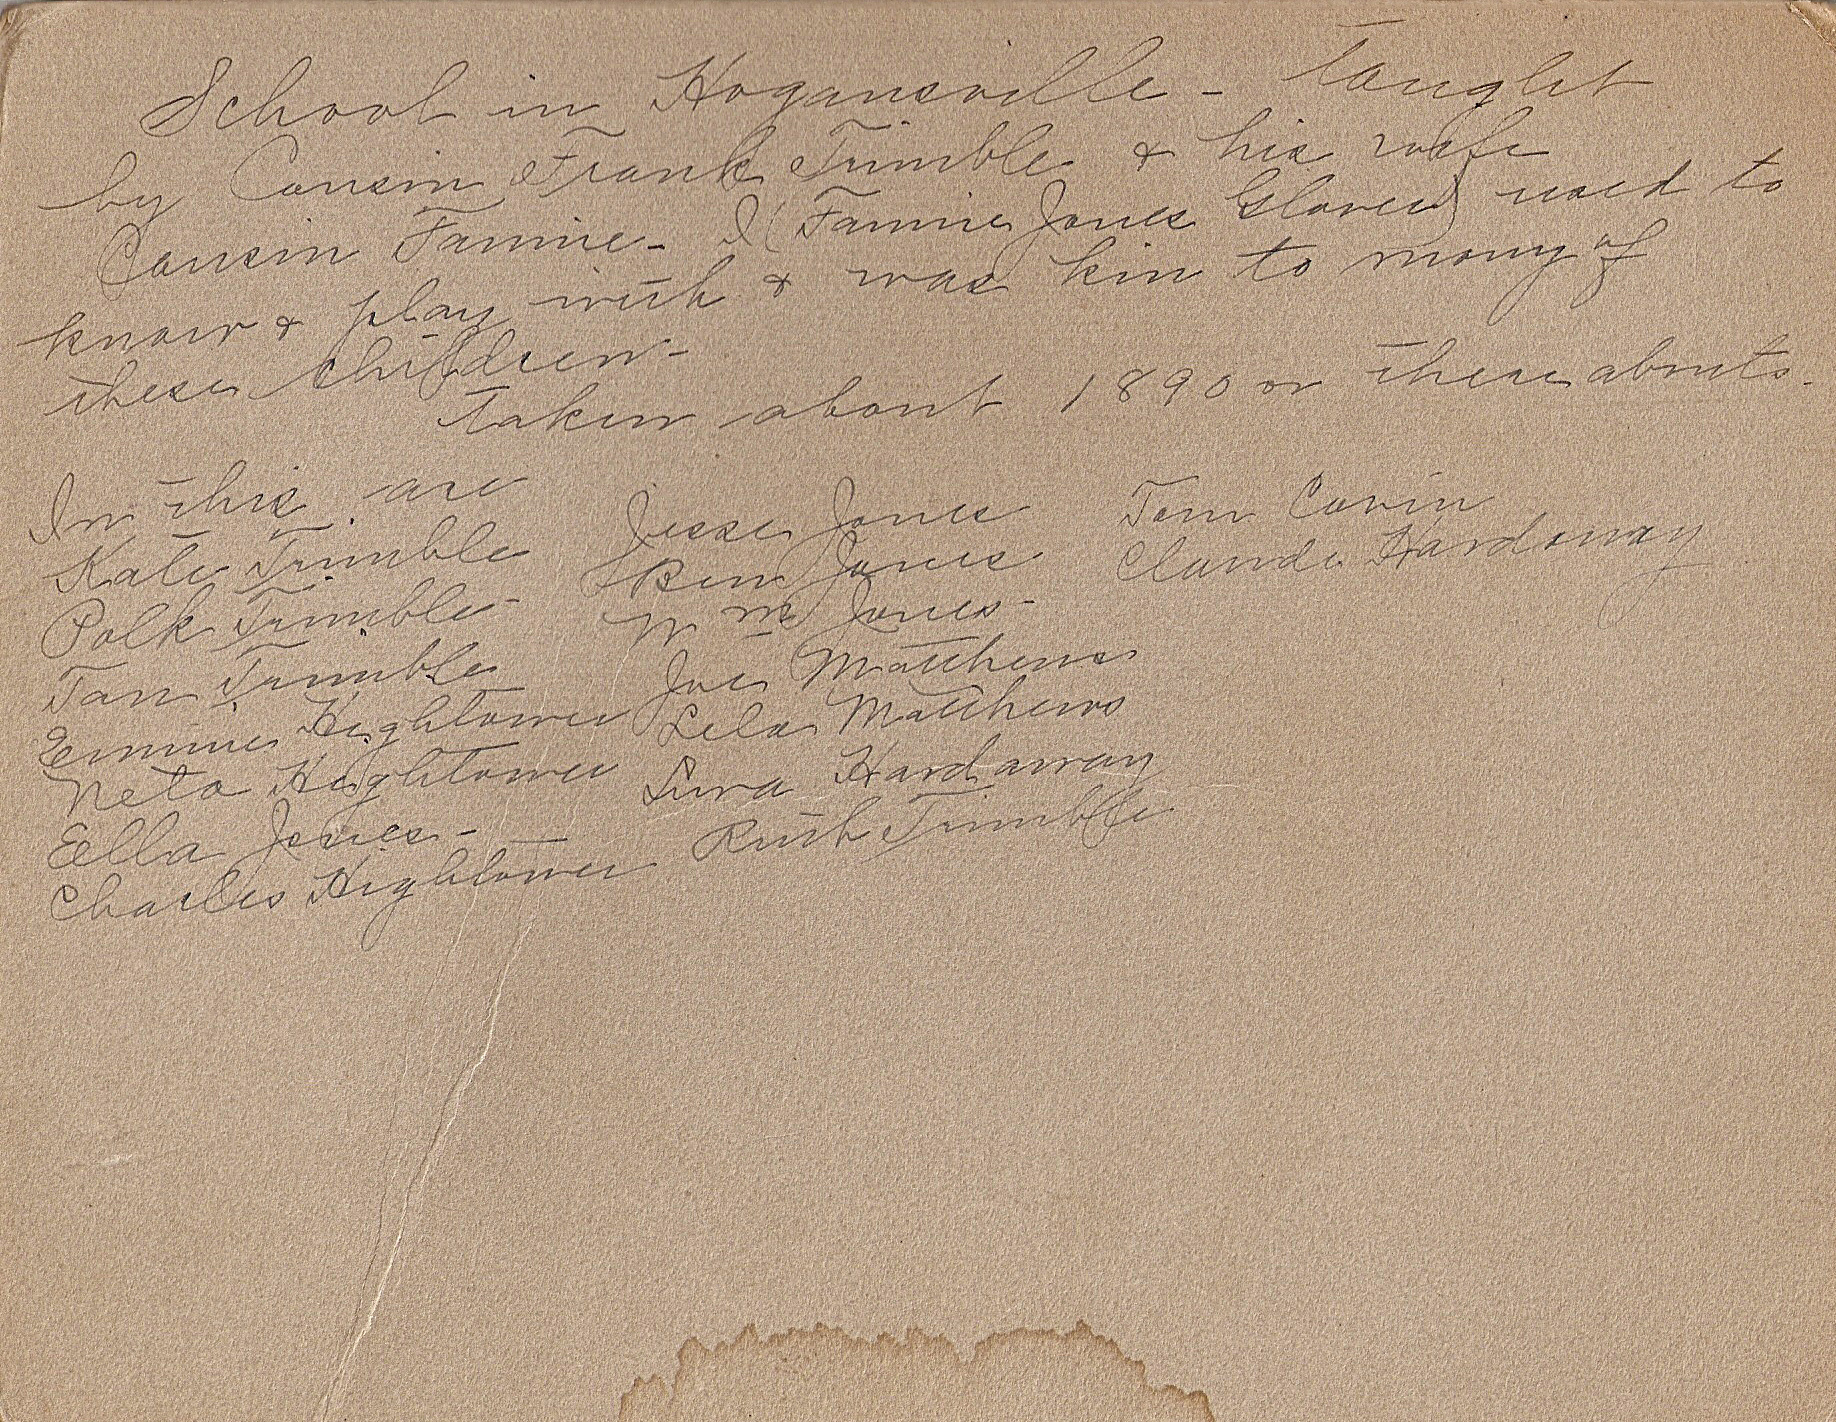 School in Hogansville - Taught
by Cousin Frank Trimble & his wife
Cousin Fannie - I (Fannie Jones Glover) used to
know & play with & was kin to many of
these children -
Taken about 1890 or there abouts.
In this are
Kate Trimble
Polk Trimble -
Tan Trimble
Emmie Hightower
Neta Hightower
Ella Jones -
Charles Hightower
Jesse Jones
Ben Jones
Wm Jones -
Joe Matthews
Lela Matthews
Hardaway
Ruth Trimble
Tom Covin
Claude Hardaway